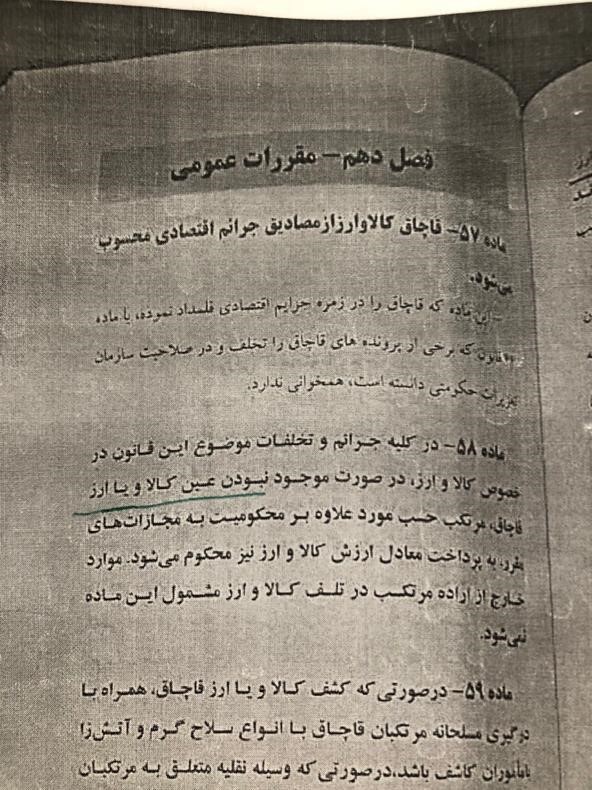 فصل دهم – مقررات عمومی
ماده ۵۷– قاچاق کالا و ارز از مصادیق جرائم اقتصادی محسوب
می‌شود.
–این ماده که قاچاق را در زمره جرایم اقتصادی قلمداد نموده، با ماده
قانون که برخی از پرونده های قاچاق را تخلف و در صلاحیت سازمان
تعزیرات حکومتی دانسته است، همخوانی ندارد.
ماده ۵۸– در کلیه جرائم و تخلفات موضوع این قانون در
خصوص کالا و ارز، در صورت موجود نبودن عین کالا و یا ارز
قاچاق، مرتکب حسب مورد علاوه بر محکومیت به مجازات‌های
مقرر، به پرداخت معادل ارزش کالا و ارز نیز محکوم می‌شود. موارد
خارج از اراده مرتکب در تلف کالا و ارز مشمول این ماده
نمی‌شود.
ماده ۵۹– درصورتی که کشف کالا و یا ارز قاچاق، همراه با
درگیری مسلحانه مرتکبان قاچاق با انواع سلاح گرم و آتش‌زا
با مأموران کاشف باشد، درصورتی که وسیله نقلیه متعلق به مرتکبان